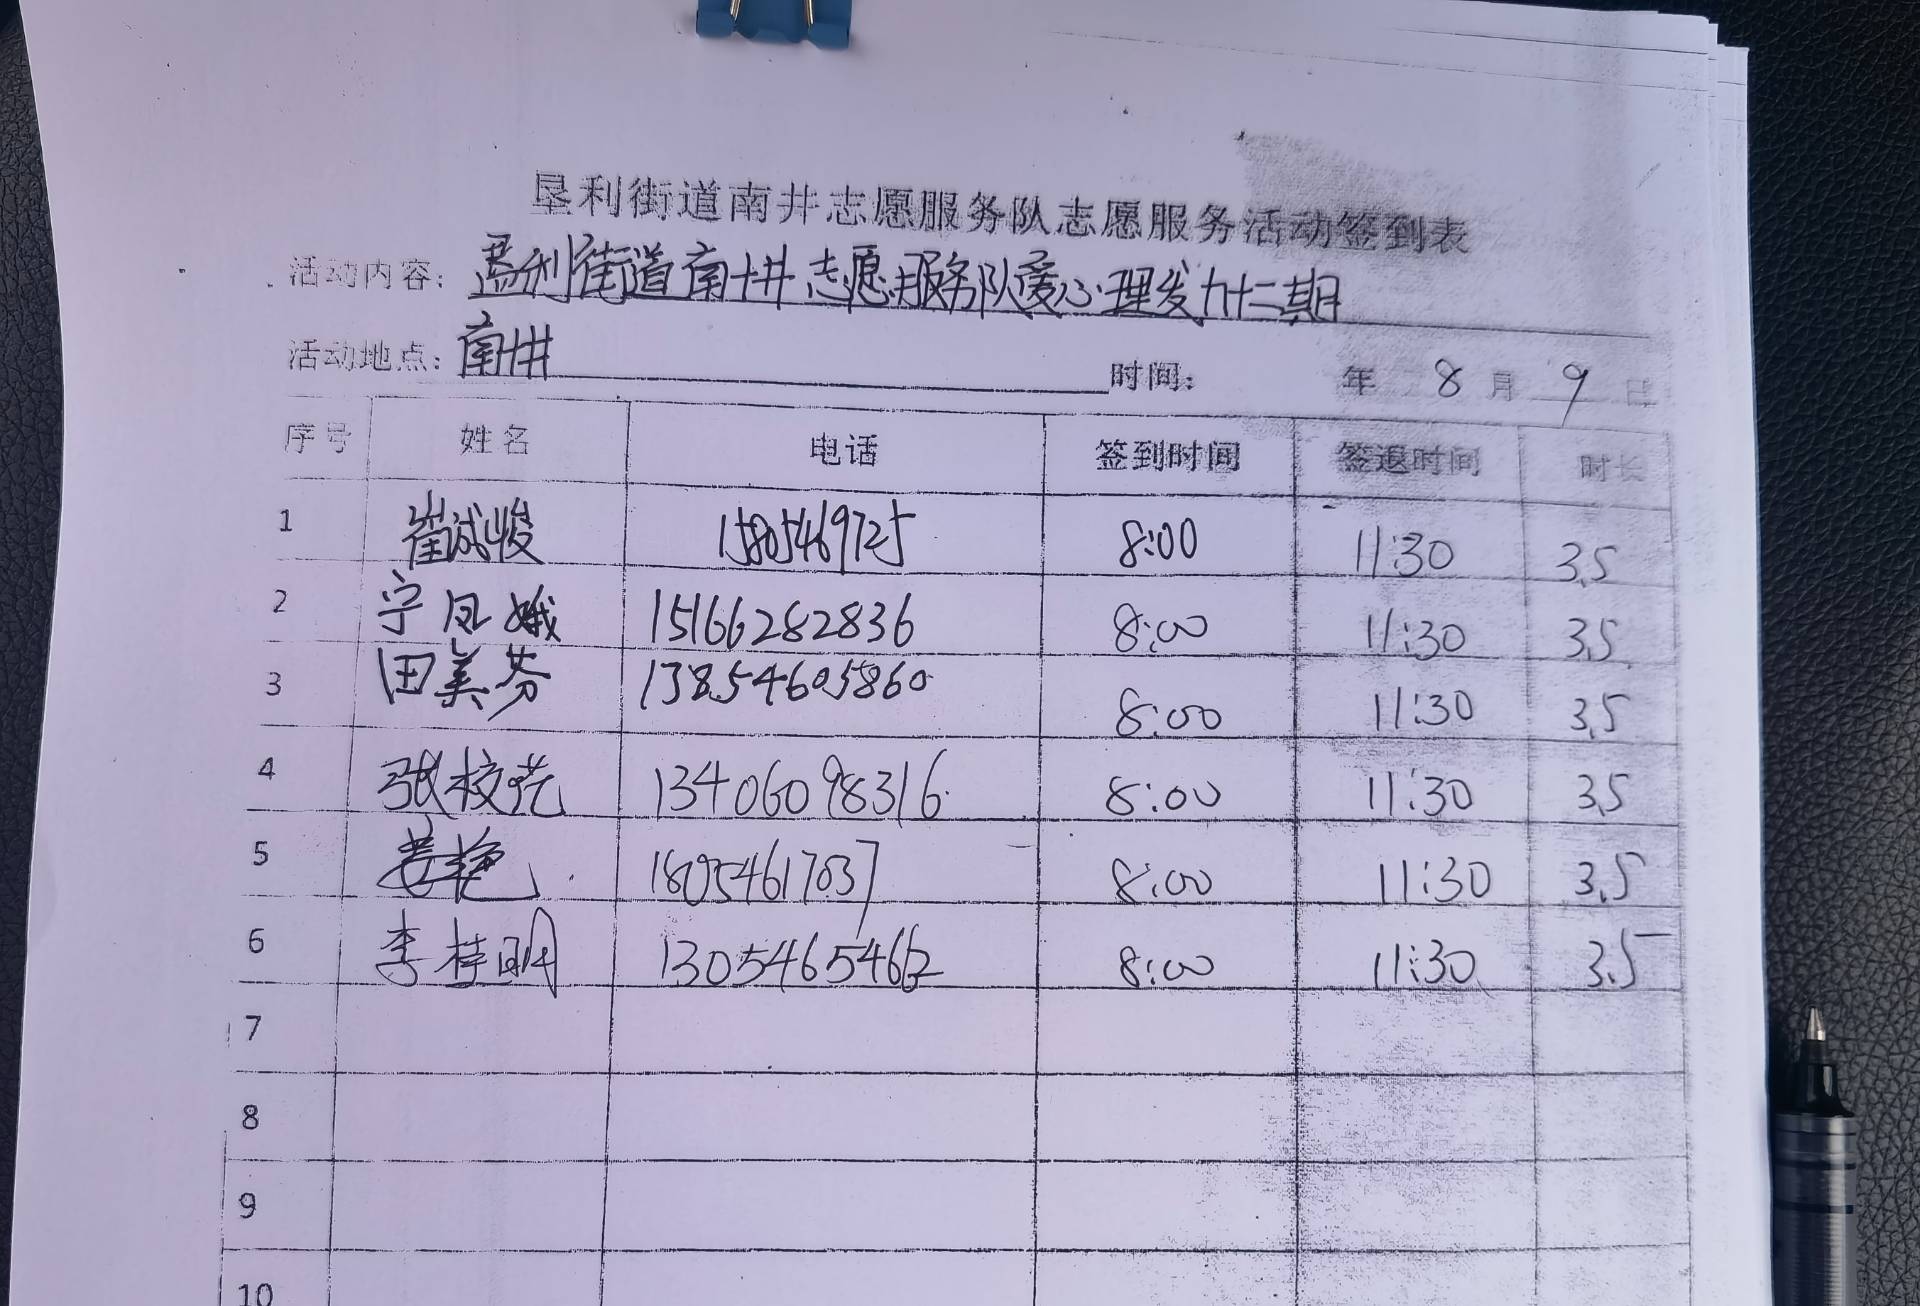 垦利街道南井志愿服务队志愿服务活动签到表
活动内容: 垦利街道南井志愿服务队爱心理发九十二期
活动地点: 南井 时间: 年 8 月 9 日
序号 姓名 电话 签到时间 签退时间 时长
1 崔试峻 15805469725 8:00 11:30 3.5
2 宁凤娥 15166282836 8:00 11:30 3.5
3 田美芬 13854605860 8:00 11:30 3.5
4 张校芫 13406098316 8:00 11:30 3.5
5 姜艳 8:00 11:30 3.5
6 李桂明 13054654662 8:00 11:30 3.5
7
8
9
10